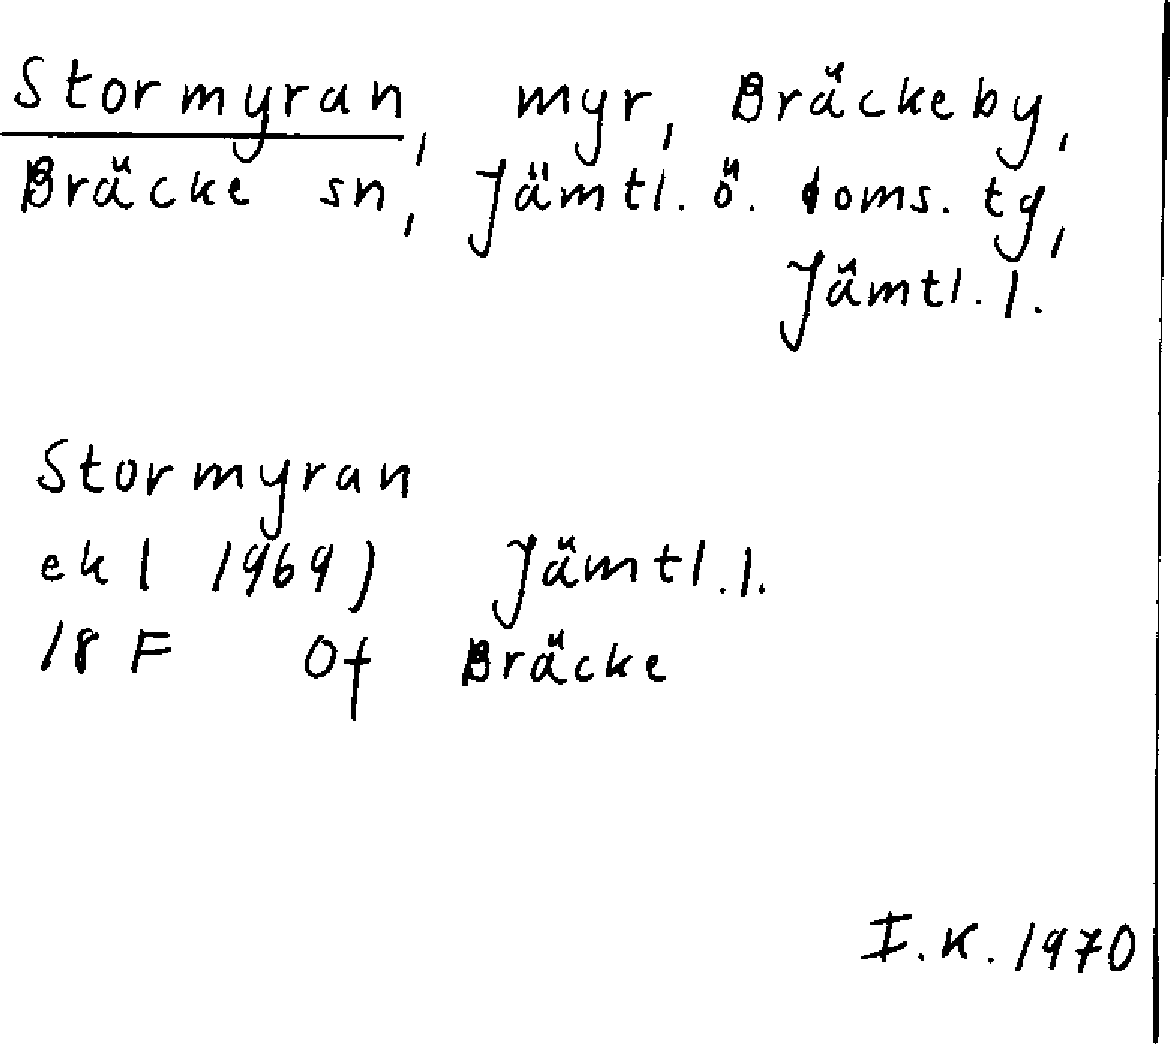 Stormyran, myr, Bräckeby,
Bräcke sn, Jämtl. ö. doms. tg,
Jämtl. l.
Stormyran
ek ( 1969) Jämtl. l.
18 F 0f Bräcke
I. K. 1970